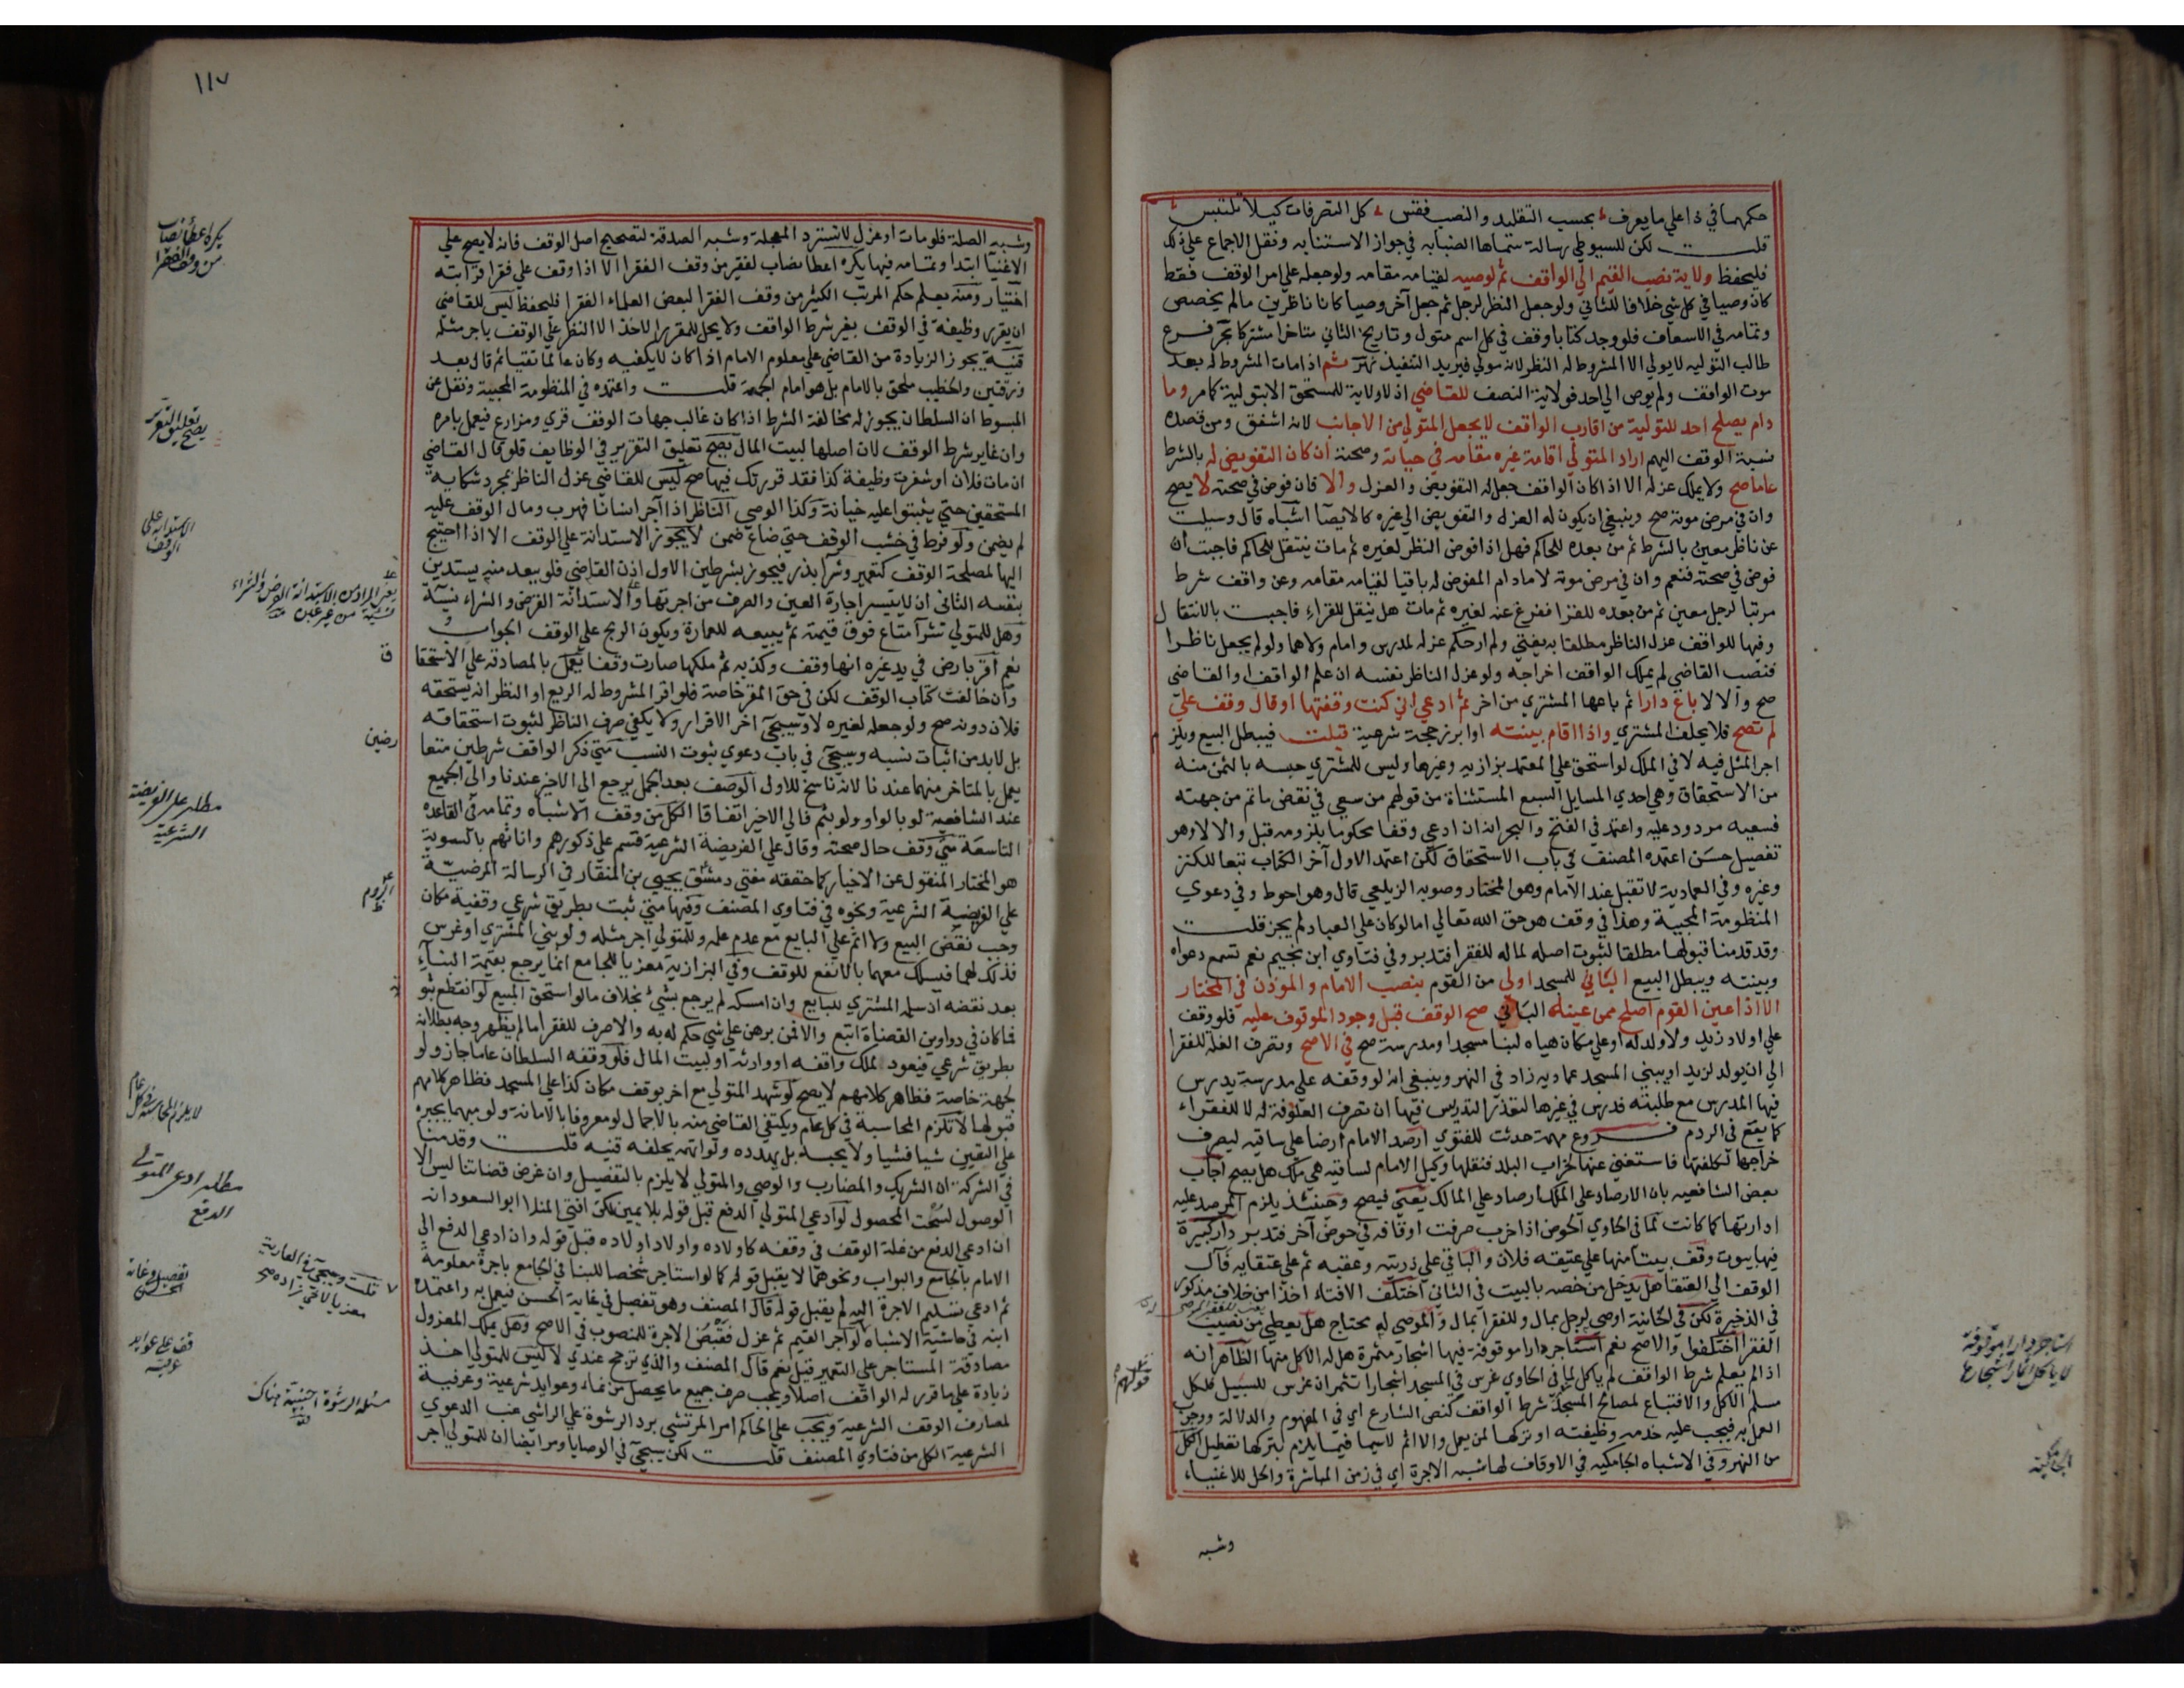 حكمهما في ذا على ما يعرف بحسب التقليد والنصب فقس كل التصرفات كيلا تلتبس
قلت لكن للسيوطي رسالة سماها الضبابه في جواز الاستنابه ونقل الاجماع على ذلك
فليحفظ ولاية نصب القيم الي الواقف ثم لوصيه لقيامه مقامه ولو جعله على امر الوقف فقط
كان وصيا في كل شي خلافا للثاني ولو جعل النظر لرجل ثم جعل آخر وصيا كانا ناظرين ما لم يخصص
وتمامه في الاسعاف فلو وجد كتابا وقف في كل اسم متول وتاريخ الثاني متاخر اشتركا بحر فرع
طالب التوليه لا يولي الا المشروط له النظر لانه مولي فيريد التنفيذ نهر ثم اذا مات المشروط له بعد
موت الواقف ولم يوص الي احد فولاية النصف للقاضي اذ لا ولاية للمستحق الا بتولية كما مر وما
دام يصلح احد للتولية من اقارب الواقف لا يجعل المتولي من الاجانب لانه اشفق ومن قصده
نسبة الوقف اليهم اراد المتولي اقامة غيره مقامه في حياته وصحته ان كان التفويض له بالشرط
عاما صح ولا يملك عزله الا اذا كان الواقف جعل له التفويض والعزل والا فان فوض في صحته لا يصح
وان في مرض موته صح وينبغي ان يكون له العزل والتفويض الي غيره كالايصا اشباه قال وسيلت
عن ناظر معين بالشرط ثم من بعده للحاكم فهل اذا فوض النظر لغيره ثم مات ينتقل للحاكم فاجبت ان
فوض في صحته فنعم وان في مرض موته لا مادام المفوض له باقيا لقيامه مقامه وعن واقف شرط
مرتبا لرجل معين ثم من بعده للفقرا ففرغ عنه لغيره ثم مات هل ينقل للفقراء فاجبت بالانتقال
وفيها للواقف عزل الناظر مطلقا به يفتي ولم ار حكم عزله لمدرس وامام ولاهما ولو لم يجعل ناظرا
فنصب القاضي لم يملك الواقف اخراجه ولو عزل الناظر نفسه ان علم الواقف او القاضي
صح والا لا باع دارا ثم باعها المشتري من اخر ثم ادعي اني كنت وقفتها او قال وقف علي
لم تصح فلا يحلف المشتري واذا اقام بينته او ابرز حجة شرعية قبلت فيبطل البيع ويلزم
اجر المثل فيه لا في الملك لو استحق علي المعتمد بزازيه وغيرها وليس للمشتري حبسه بالثمن منه
من الاستحقاق وهي احدي المسايل السبع المستثناة من قولهم من سعي في نقض ما تم من جهته
فسعيه مردود عليه واعتمد في الفتح والبحر انه ان ادعي وقفا محكوما بلزومه قبل والا لا وهو
تفصيل حسن اعتمده المصنف في باب الاستحقاق لكن اعتمد الاول آخر الكتاب تبعا للكنز
وغيره وفي العمادية لا تقبل عند الامام وهو المختار وصوبه الزيلعي قال وهو احوط وفي دعوي
المنظومة المحبية وهذا في وقف هو حق الله تعالي اما لو كان علي العباد لم يجز قلت
وقد قدمنا قبولها مطلقا لثبوت اصله لماله للفقرا فتدبر وفي فتاوي ابن نجيم نعم تسمع دعواه
وبينته ويبطل البيع الباني للمسجد اولي من القوم بنصب الامام والموذن في المختار
الا اذا عين القوم اصلح ممن عينه الباني صح الوقف قبل وجود الموقوف عليه فلو وقف
علي اولاد زيد ولا ولد له او علي مكان هياه لبنا مسجد او مدرسة صح في الاصح وتصرف الغلة للفقرا
الي ان يولد لزيد او يبني المسجد عماديه زاد في النهر وينبغي انه لو وقفه علي مدرسة يدرس
فيها المدرس مع طلبته فدرس في غيرها لتعذر التدريس فيها ان تصرف العلوفة له لا للفقراء
كما يقع في الروم فروع مهمة حدثت للفتوي ارصد الامام ارضا علي ساقيه ليصرف
خراجها لكلفتها فاستغني عنها لخراب البلد فنقلها وكيل الامام لساقيه هي ملك هل يصح اجاب
بعض الشافعيه بان الارصاد على الملك ارصاد علي المالك يعني فيصح وحينئذ يلزم المرصد عليه
ادارتها كما كانت لما في الحاوي الحوض اذا خرب صرفت اوقافه في حوض آخر فتدبر دار كبيرة
فيها بيوت وقف بيتا منها علي عتيقه فلان والباقي علي ذريته وعقبه ثم علي عتقايه فآل
الوقف الي العتقا هل يدخل من خصه بالبيت في الثاني اختلف الافتاء اخذا من خلاف مذكور
في الذخيرة لكن في الخانية اوصي لرجل بمال وللفقرا بمال والموصي له محتاج هل يعطي من نصيب
الفقرا اختلفوا والاصح نعم استاجر دارا موقوفة فيها اشجار مثمرة هل له الاكل منها الظاهر انه
اذا لم يعلم شرط الواقف لم ياكل لما في الحاوي غرس في المسجد اشجارا تثمر ان غرس للسبيل فلكل
مسلم الاكل والا فتباع لمصالح المسجد شرط الواقف كنص الشارع اي في المفهوم والدلالة ووجوب
العمل به فيجب عليه خدمه وظيفته او تركها لمن يعمل والا اثم لا سيما فيما يلزم بتركها تعطيل الكل
من النهر وفي الاشباه الجامكيه في الاوقاف لها شبه الاجرة اي في زمن المباشرة والحل للاغنياء
وشبه
قولهم
استاجر دارا موقوفة
لا ياكل اثمار اشجارها
الجامكية
١١٧
وشبه الصلة فلو مات او عزل لا تسترد المعجلة وشبه الصدقة لتصحيح اصل الوقف فانه لا يصح على
الاغنيا ابتدا وتمامه فيها يكره اعطا نصاب لفقير من وقف الفقرا الا اذا وقف علي فقرا قرابته
اختيار ومنه يعلم حكم المرتب الكثير من وقف الفقرا لبعض العلماء الفقرا فليحفظ ليس للقاضي
ان يقرر وظيفة في الوقف بغير شرط الواقف ولا يحل للمقرر الاخذ الا النظر علي الوقف باجر مثله
قنية يجوز الزيادة من القاضي علي معلوم الامام اذا كان لا يكفيه وكان عالما تقيا ثم قال بعد
ورقتين والخطيب ملحق بالامام بل هو امام الجمعة قلت واعتمده في المنظومة المحبية ونقل عن
المبسوط ان السلطان يجوز له مخالفة الشرط اذا كان غالب جهات الوقف قري ومزارع فيعمل بامره
وان غاير شرط الوقف لان اصلها لبيت المال يصح تعليق التقرير في الوظايف فلو قال القاضي
ان مات فلان او شغرت وظيفة كذا فقد قررتك فيها صح ليس للقاضي عزل الناظر بمجرد شكاية
المستحقين حتي يثبتوا عليه خيانة وكذا الوصي الناظر اذا آجر انسانا فهرب ومال الوقف عليه
لم يضمن ولو فرط في خشب الوقف حتى ضاع ضمن لا يجوز الاستدانة علي الوقف الا اذا احتيج
اليها لمصلحة الوقف كتعمير وشرا بذر فيجوز بشرطين الاول اذن القاضي فلو بعد منه يستدين
بنفسه الثاني ان لا يتيسر اجارة العين والصرف من اجرتها والاستدانة القرض والشراء نسية
وهل للمتولي شرا متاع فوق قيمته ثم يبيعه للعمارة ويكون الربح علي الوقف الجواب
نعم اقر بارض في يد غيره انها وقف وكذبه ثم ملكها صارت وقفا يعمل بالمصادقة علي الاستحقا
وان خالفت كتاب الوقف لكن في حق المقر خاصة فلو اقر المشروط له الريع او النظر انه يستحقه
فلان دونه صح ولو جعله لغيره لا وسيجي آخر الاقرار ولا يكفي صرف الناظر لثبوت استحقاقه
بل لابد من اثبات نسبه وسيجي في باب دعوي ثبوت النسب متي ذكر الواقف شرطين متعا
يعمل بالمتاخر منهما عندنا لانه ناسخ للاول الوصف بعد الجمل يرجع الي الاخير عندنا والي الجميع
عند الشافعية لو بالواو ولو بثم فالي الاخير اتفاقا الكل من وقف الاشباه وتمامه في القاعده
التاسعة متي وقف حال صحته وقال علي الفريضة الشرعية قسم علي ذكورهم واناثهم بالسوية
هو المختار المنقول عن الاخيار كما حققه مفتي دمشق يحيي بن المنقار في الرسالة المرضية
علي الفريضة الشرعية ونحوه في فتاوي المصنف وفيها متي ثبت بطريق شرعي وقفية مكان
وجب نقض البيع ولا اثم علي البايع مع عدم علمه وللمتولي اجر مثله ولو بني المشتري او غرس
فذلك لهما فيسلك معهما بالانفع للوقف وفي البزازية معزيا للجامع انما يرجع بقيمة البناء
بعد نقضه ان سلمه المشتري للبايع وان امسكه لم يرجع بشيء بخلاف ما لو استحق المبيع لو انقطع ثبو
فما كان في دواوين القضاة اتبع والا فمن برهن علي شي حكم له به والا صرف للفقرا ما لم يظهر وجه بطلانه
بطريق شرعي فيعود لملك واقفه او وارثه او لبيت المال فلو وقفه السلطان عاما جاز ولو
لجهة خاصة فظاهر كلامهم لا يصح لو شهد المتولي مع اخر بوقف مكان كذا علي المسجد فظاهر كلامهم
قبولها لا تلزم المحاسبة في كل عام ويكتفي القاضي منه بالاجمال لو معروفا بالامانة ولو متهما يجبره
علي التعيين شيا فشيا ولا يحبسه بل يهدده ولو اتهمه يحلفه قنيه قلت وقدمنا
في الشركة ان الشريك والمضارب والوصي والمتولي لا يلزم بالتفصيل وان غرض قضاتنا ليس الا
الوصول لسحت المحصول لو ادعي المتولي الدفع قبل قوله بلا يمين لكن افتي المنلا ابو السعود انه
ان ادعي الدفع من غلة الوقف في وقفه كاولاده واولاد اولاده قبل قوله وان ادعي الدفع الي
الامام بالجامع والبواب ونحوهما لا يقبل قوله كما لو استاجر شخصا للبنا في الجامع باجرة معلومة
ثم ادعي تسليم الاجرة اليه لم يقبل قوله قال المصنف وهو تفصيل في غاية الحسن فيعمل به واعتمده
ابنه في حاشية الاشباه لو آجر القيم ثم عزل فقبض الاجرة للمنصوب في الاصح وهل يملك المعزول
مصادقة المستاجر علي التعمير قيل نعم قال المصنف والذي ترجح عندي لا ليس للمتولي اخذ
زيادة علي ما قرر له الواقف اصلا ويجب صرف جميع ما يحصل من نماء وعوايد شرعية وعرفية
لمصارف الوقف الشرعية ويجب علي الحاكم امر المرتشي برد الرشوة علي الراشي غب الدعوي
الشرعية الكل من فتاوي المصنف قلت لكن سيجي في الوصايا ومر ايضا ان للمتولي اجر
يكره اعطا نصاب
من وقف الفقرا
يصح تعليق التقرير
الاستدانه على
الوقف
ق
رضين
مطلب على الفريضة
الشرعية
لا يلزم المحاسبة في كل عام
مطلب ادعى المتولي
الدفع
قلت وسيجي في العارية
معزيا لاخي زاده صح
تفصيل في غاية
الحسن